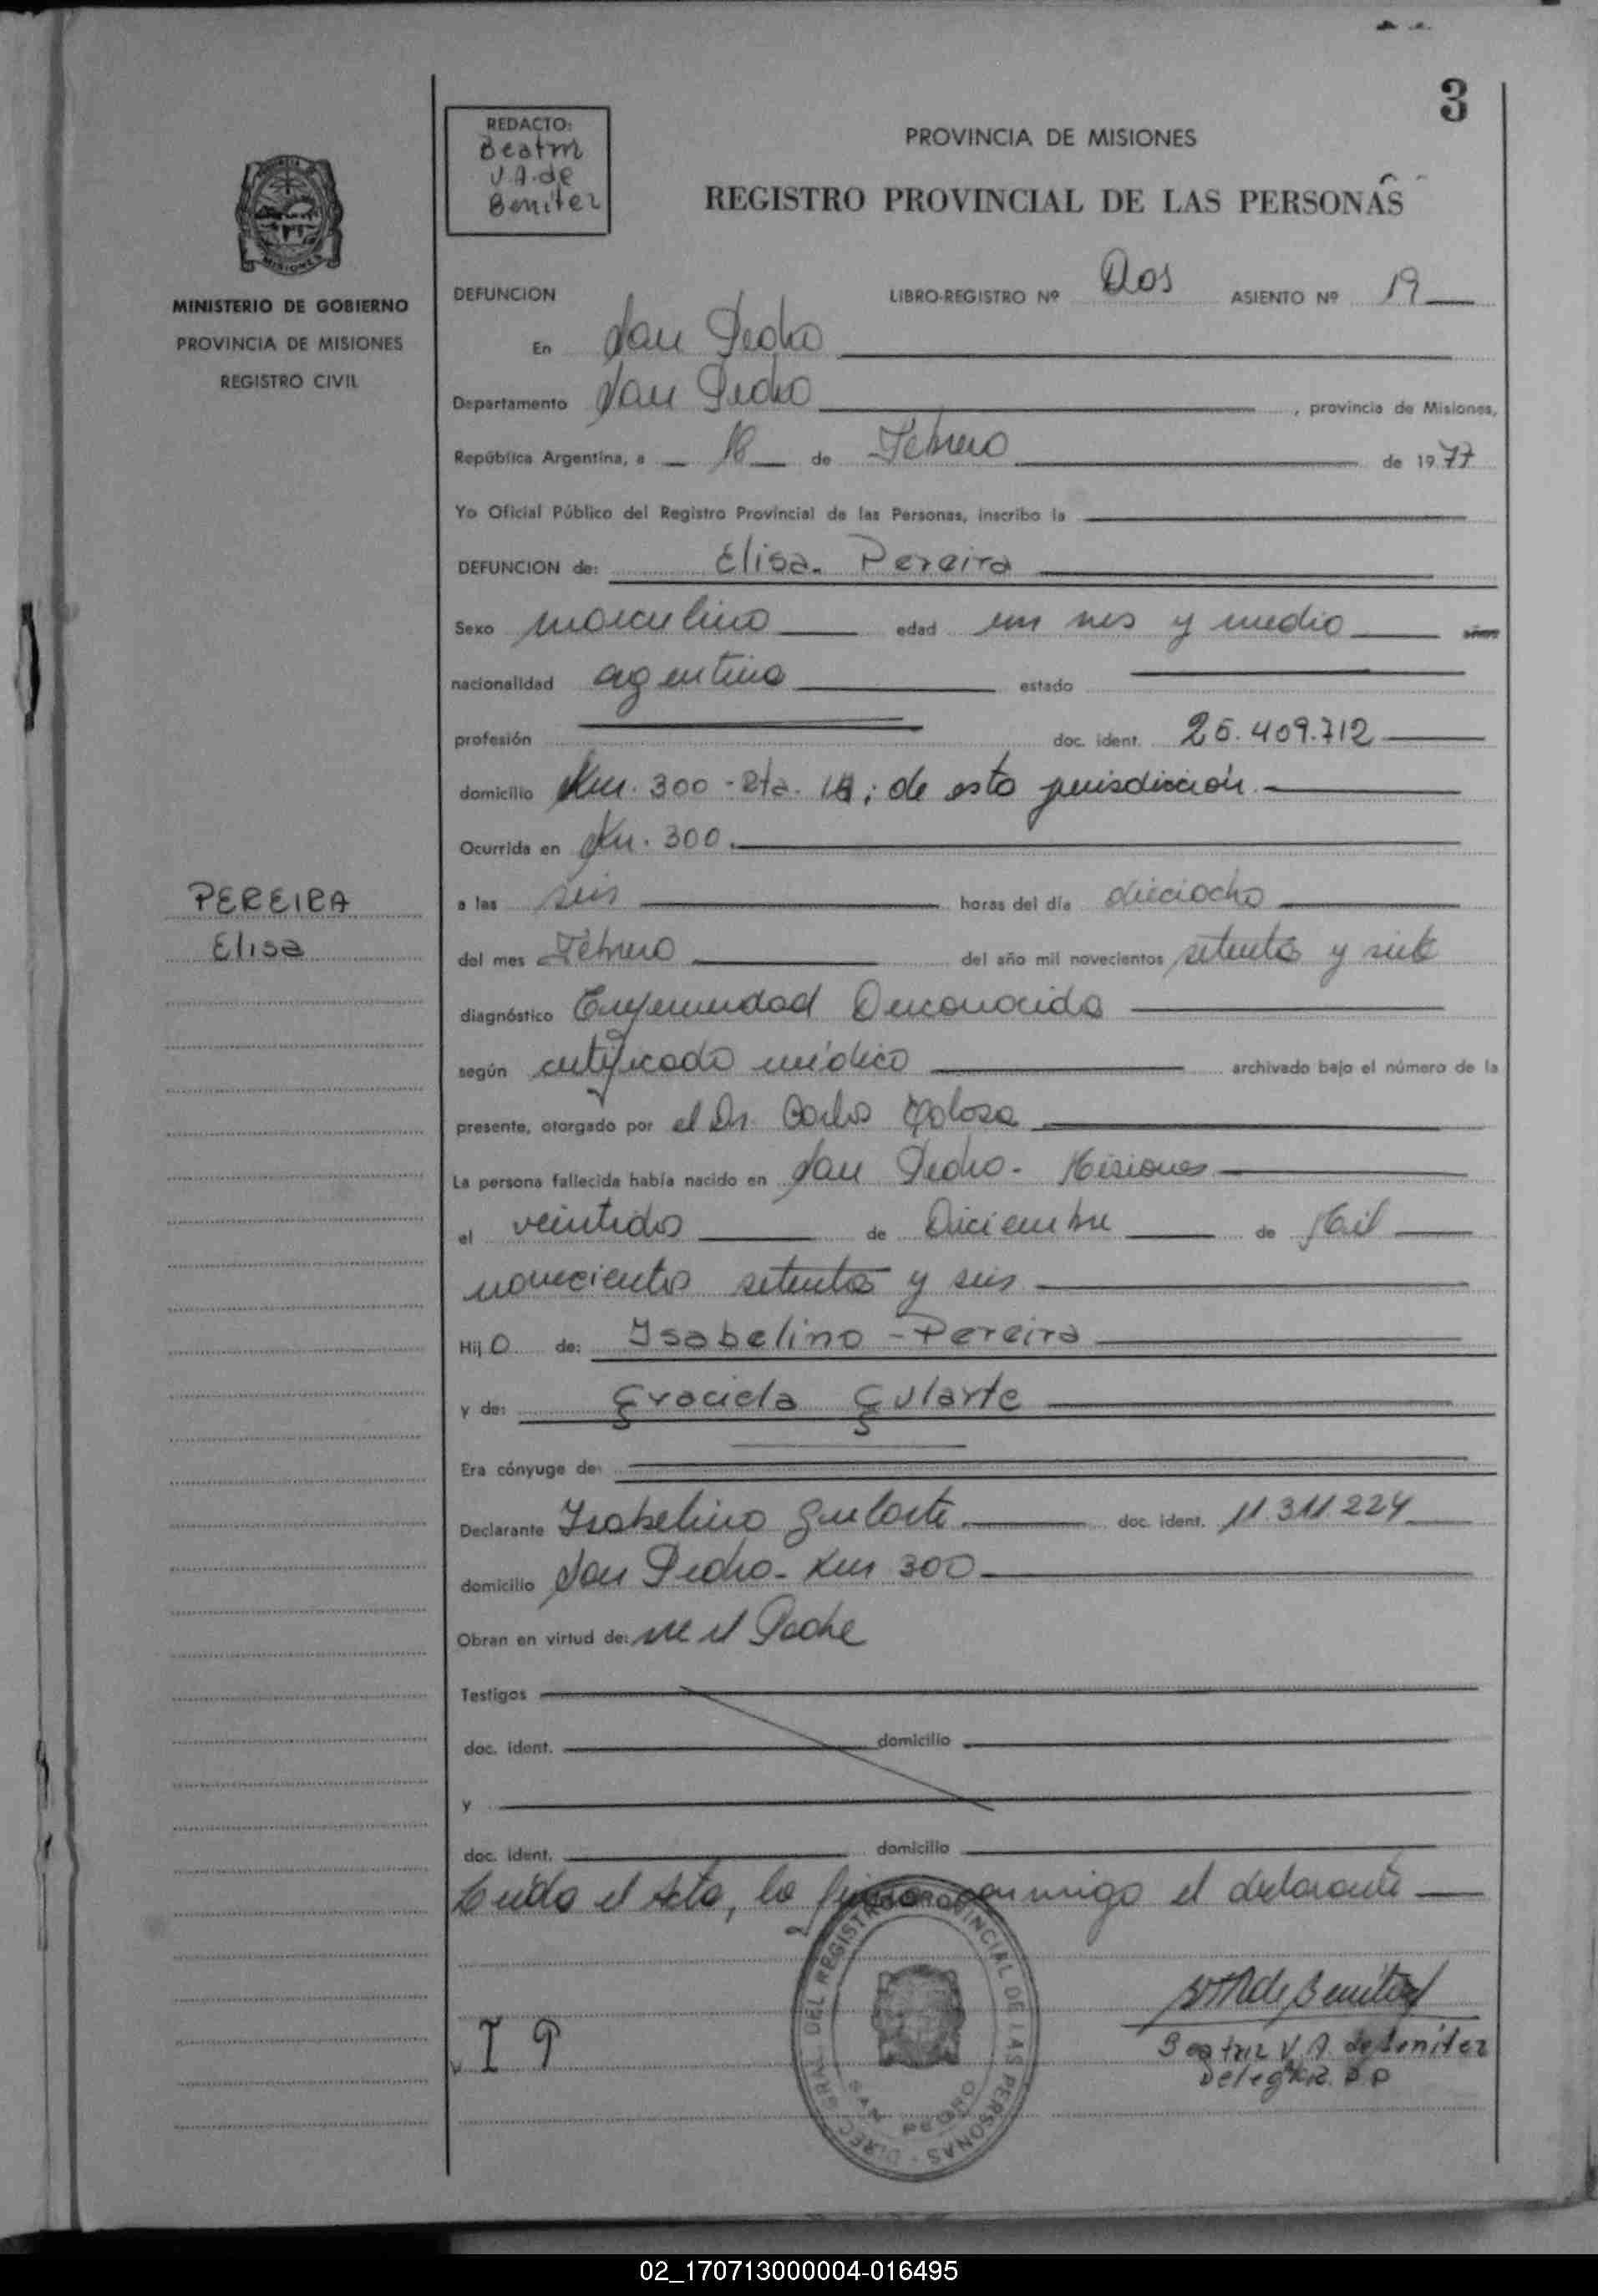 3
REDACTO:
Beatriz
V.A. de
Benitez
PROVINCIA DE MISIONES
REGISTRO PROVINCIAL DE LAS PERSONAS
MISIONES
MINISTERIO DE GOBIERNO
PROVINCIA DE MISIONES
REGISTRO CIVIL
DEFUNCION LIBRO-REGISTRO Nº Dos ASIENTO Nº 19
En San Pedro
Departamento San Pedro, provincia de Misiones,
República Argentina, a 18 de Febrero de 1977
Yo Oficial Público del Registro Provincial de las Personas, inscribo la
DEFUNCION de: Elisa. Pereira
Sexo masculino edad un mes y medio años
nacionalidad argentino estado
profesión doc. ident. 25.409.712
domicilio Km. 300 - Rta. 14; de esta jurisdicción.
Ocurrida en Km. 300.
PEREIRA
Elisa
a las seis horas del día dieciocho
del mes Febrero del año mil novecientos setenta y siete
diagnóstico Enfermedad Desconocida
según certificado médico archivado bajo el número de la
presente, otorgado por el Dr. Carlos
La persona fallecida había nacido en San Pedro. Misiones
el veintidos de Diciembre de Mil
novecientos setenta y seis
Hij O de: Isabelino - Pereira
y de: Graciela Gularte
Era cónyuge de:
Declarante Isabelino Gularte. doc. ident. 11.311.224
domicilio San Pedro. Km 300
Obran en virtud de: ser el Padre
Testigos
doc. ident. domicilio
y
doc. ident. domicilio
Leida el Acta, la firma conmigo el declarante
DIREC. GRAL. DEL REGISTRO PROVINCIAL DE LAS PERSONAS
SAN PEDRO
I P
V A de Benitez
Beatriz V. A. de Benitez
02_170713000004-016495